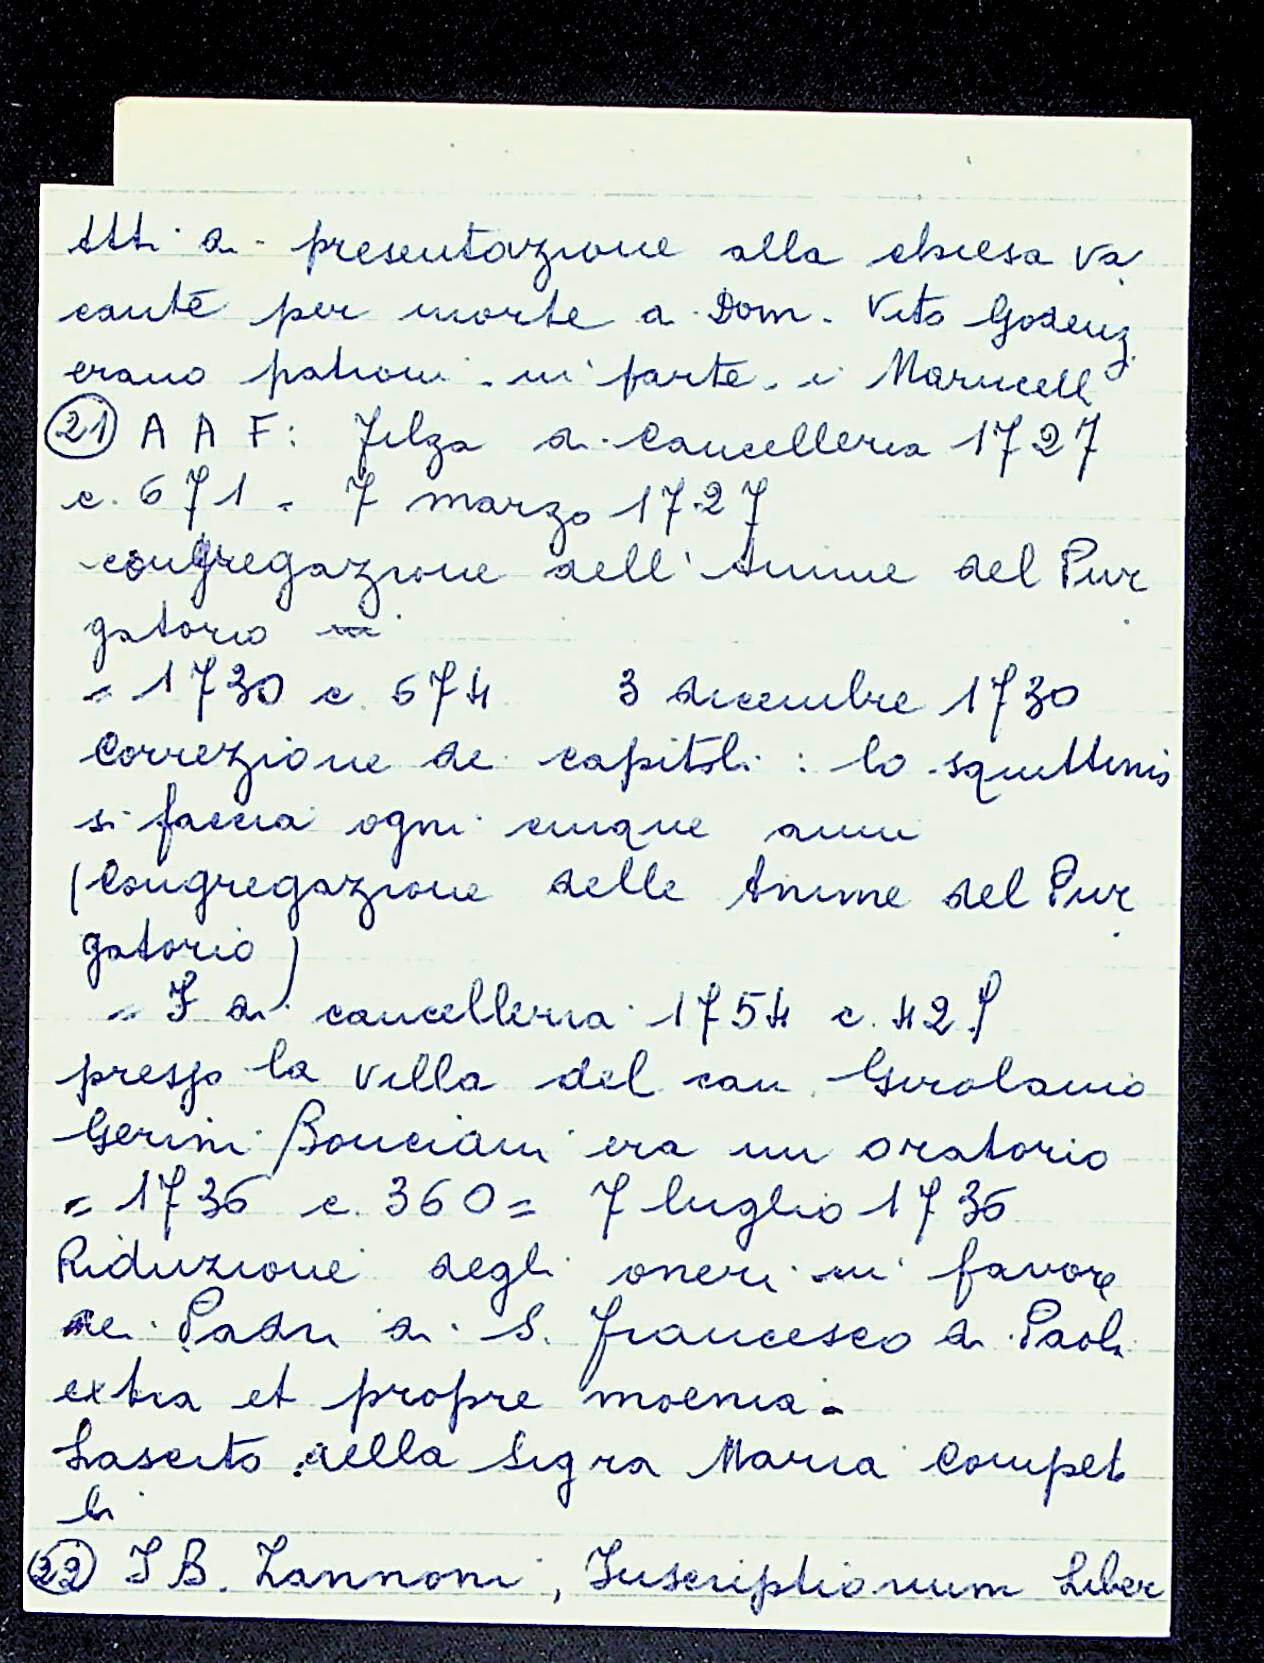 Atti di presentazione alla chiesa va
cante per morte di Dom. Vito Godenz
erano patroni in parte i Marucell
(21) A A F: Filza di Cancelleria 1727
c. 671 = 7 marzo 1727
congregazione dell'Anime del Pur
gatorio
= 1730 c. 674 3 dicembre 1730
Correzione de capitoli: lo squittinio
si faccia ogni cinque anni
(Congregazione delle Anime del Pur
gatorio)
= F di cancelleria 1754 c. 429
presso la villa del can. Girolamo
Gerini Bonciani era un oratorio
= 1736 c. 360 = 7 luglio 1736
Riduzione degli oneri in favore
dei Padri di S. Francesco di Paola
extra et propre moenia.
Lascito della Sigra Maria Compet
ti
(22) I B. Zannoni, Inscriptionum Liber